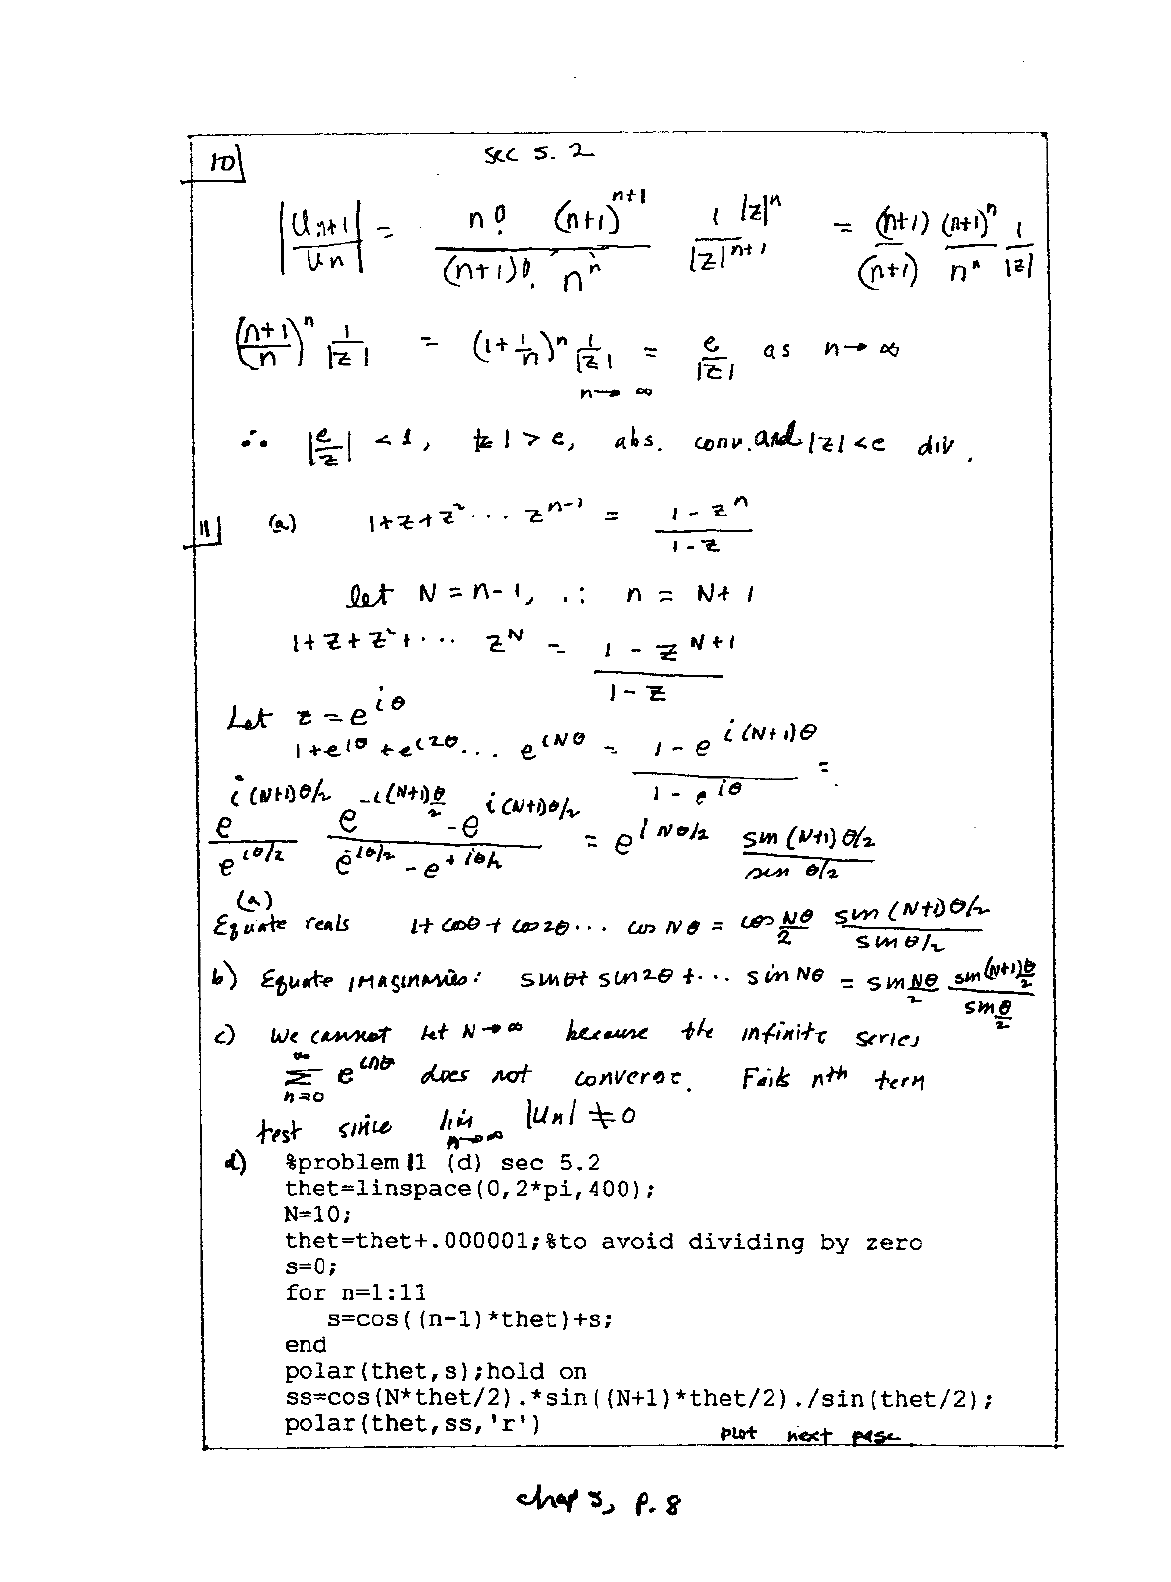 10 sec 5.2
|Un+1/Un| = n! (n+1)^(n+1) / (n+1)! n^n |z|^n / |z|^(n+1) = (n+1) (n+1)^n 1 / (n+1) n^n |z|
((n+1)/n)^n 1/|z| = (1+1/n)^n 1/|z| = e/|z| as n→∞
n→∞
∴ |e/z| < 1, |z| > e, abs. conv. and |z| < e div.
11 (a) 1+z+z²... z^(n-1) = (1-z^n)/(1-z)
let N = n-1, ∴ n = N+1
1+z+z²+... z^N = (1-z^(N+1))/(1-z)
Let z = e^(iθ)
1+e^(iθ)+e^(i2θ)... e^(iNθ) = (1-e^(i(N+1)θ))/(1-e^(iθ)) =
e^(i(N+1)θ/2)/e^(iθ/2) (e^(-i(N+1)θ/2) - e^(i(N+1)θ/2))/(e^(-iθ/2) - e^(+iθ/2)) = e^(iNθ/2) sin(N+1)θ/2 / sin θ/2
(a)
Equate reals 1+cosθ+cos2θ... cos Nθ = cos Nθ/2 sin(N+1)θ/2 / sin θ/2
b) Equate imaginaries: sinθ+sin2θ+... sin Nθ = sin Nθ/2 sin(N+1)θ/2 / sin θ/2
c) We cannot let N→∞ because the infinite series
∑_(n=0)^∞ e^(inθ) does not converge. Fails nth term
test since lim_(n→∞) |Un| ≠ 0
d) %problem 11 (d) sec 5.2
thet=linspace(0,2*pi,400);
N=10;
thet=thet+.000001;%to avoid dividing by zero
s=0;
for n=1:11
s=cos((n-1)*thet)+s;
end
polar(thet,s);hold on
ss=cos(N*thet/2).*sin((N+1)*thet/2)./sin(thet/2);
polar(thet,ss,'r')
plot next page
chap 5, p. 8